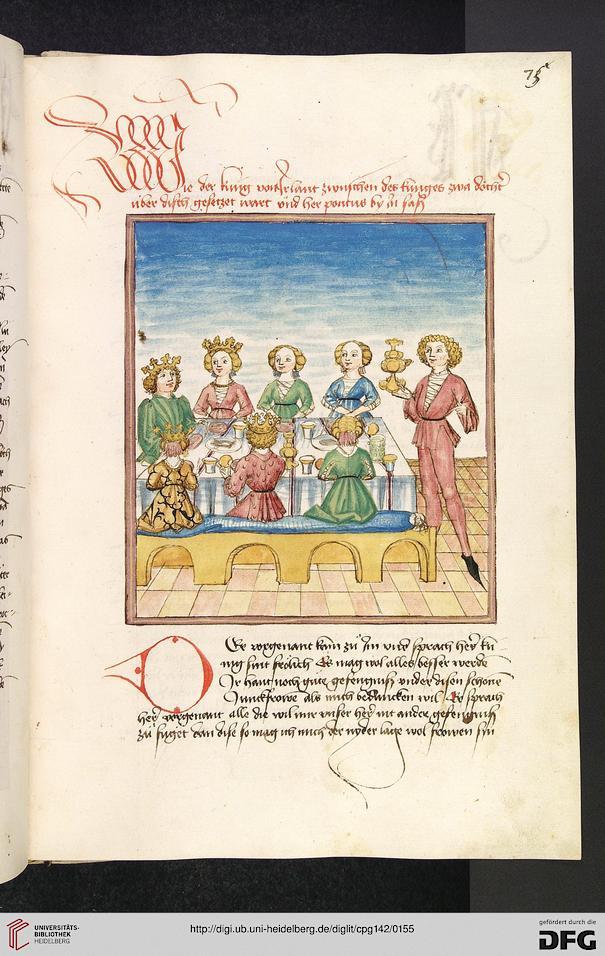 75r
Wie der kung von Irlant zwuschen des kunges zwa döcht
uber disch gesetzet wart und her pontus by in sasz
Der vorgenant kam zu Im und sprach her ku-
nig sint frölich Es mag wol alles besser werde
Ir hant noch gute gefengnusz under disen schöne
Junckfrowe als mich beduncken wil Er sprach
her vorgenant alle die wil mir unser her nit ander gefengnusz
zu füget dan dise so mag ich mich der nyder lage wol frowen sin
UNIVERSITÄTS-
BIBLIOTHEK
HEIDELBERG
http://digi.ub.uni-heidelberg.de/diglit/cpg142/0155
gefördert durch die
DFG